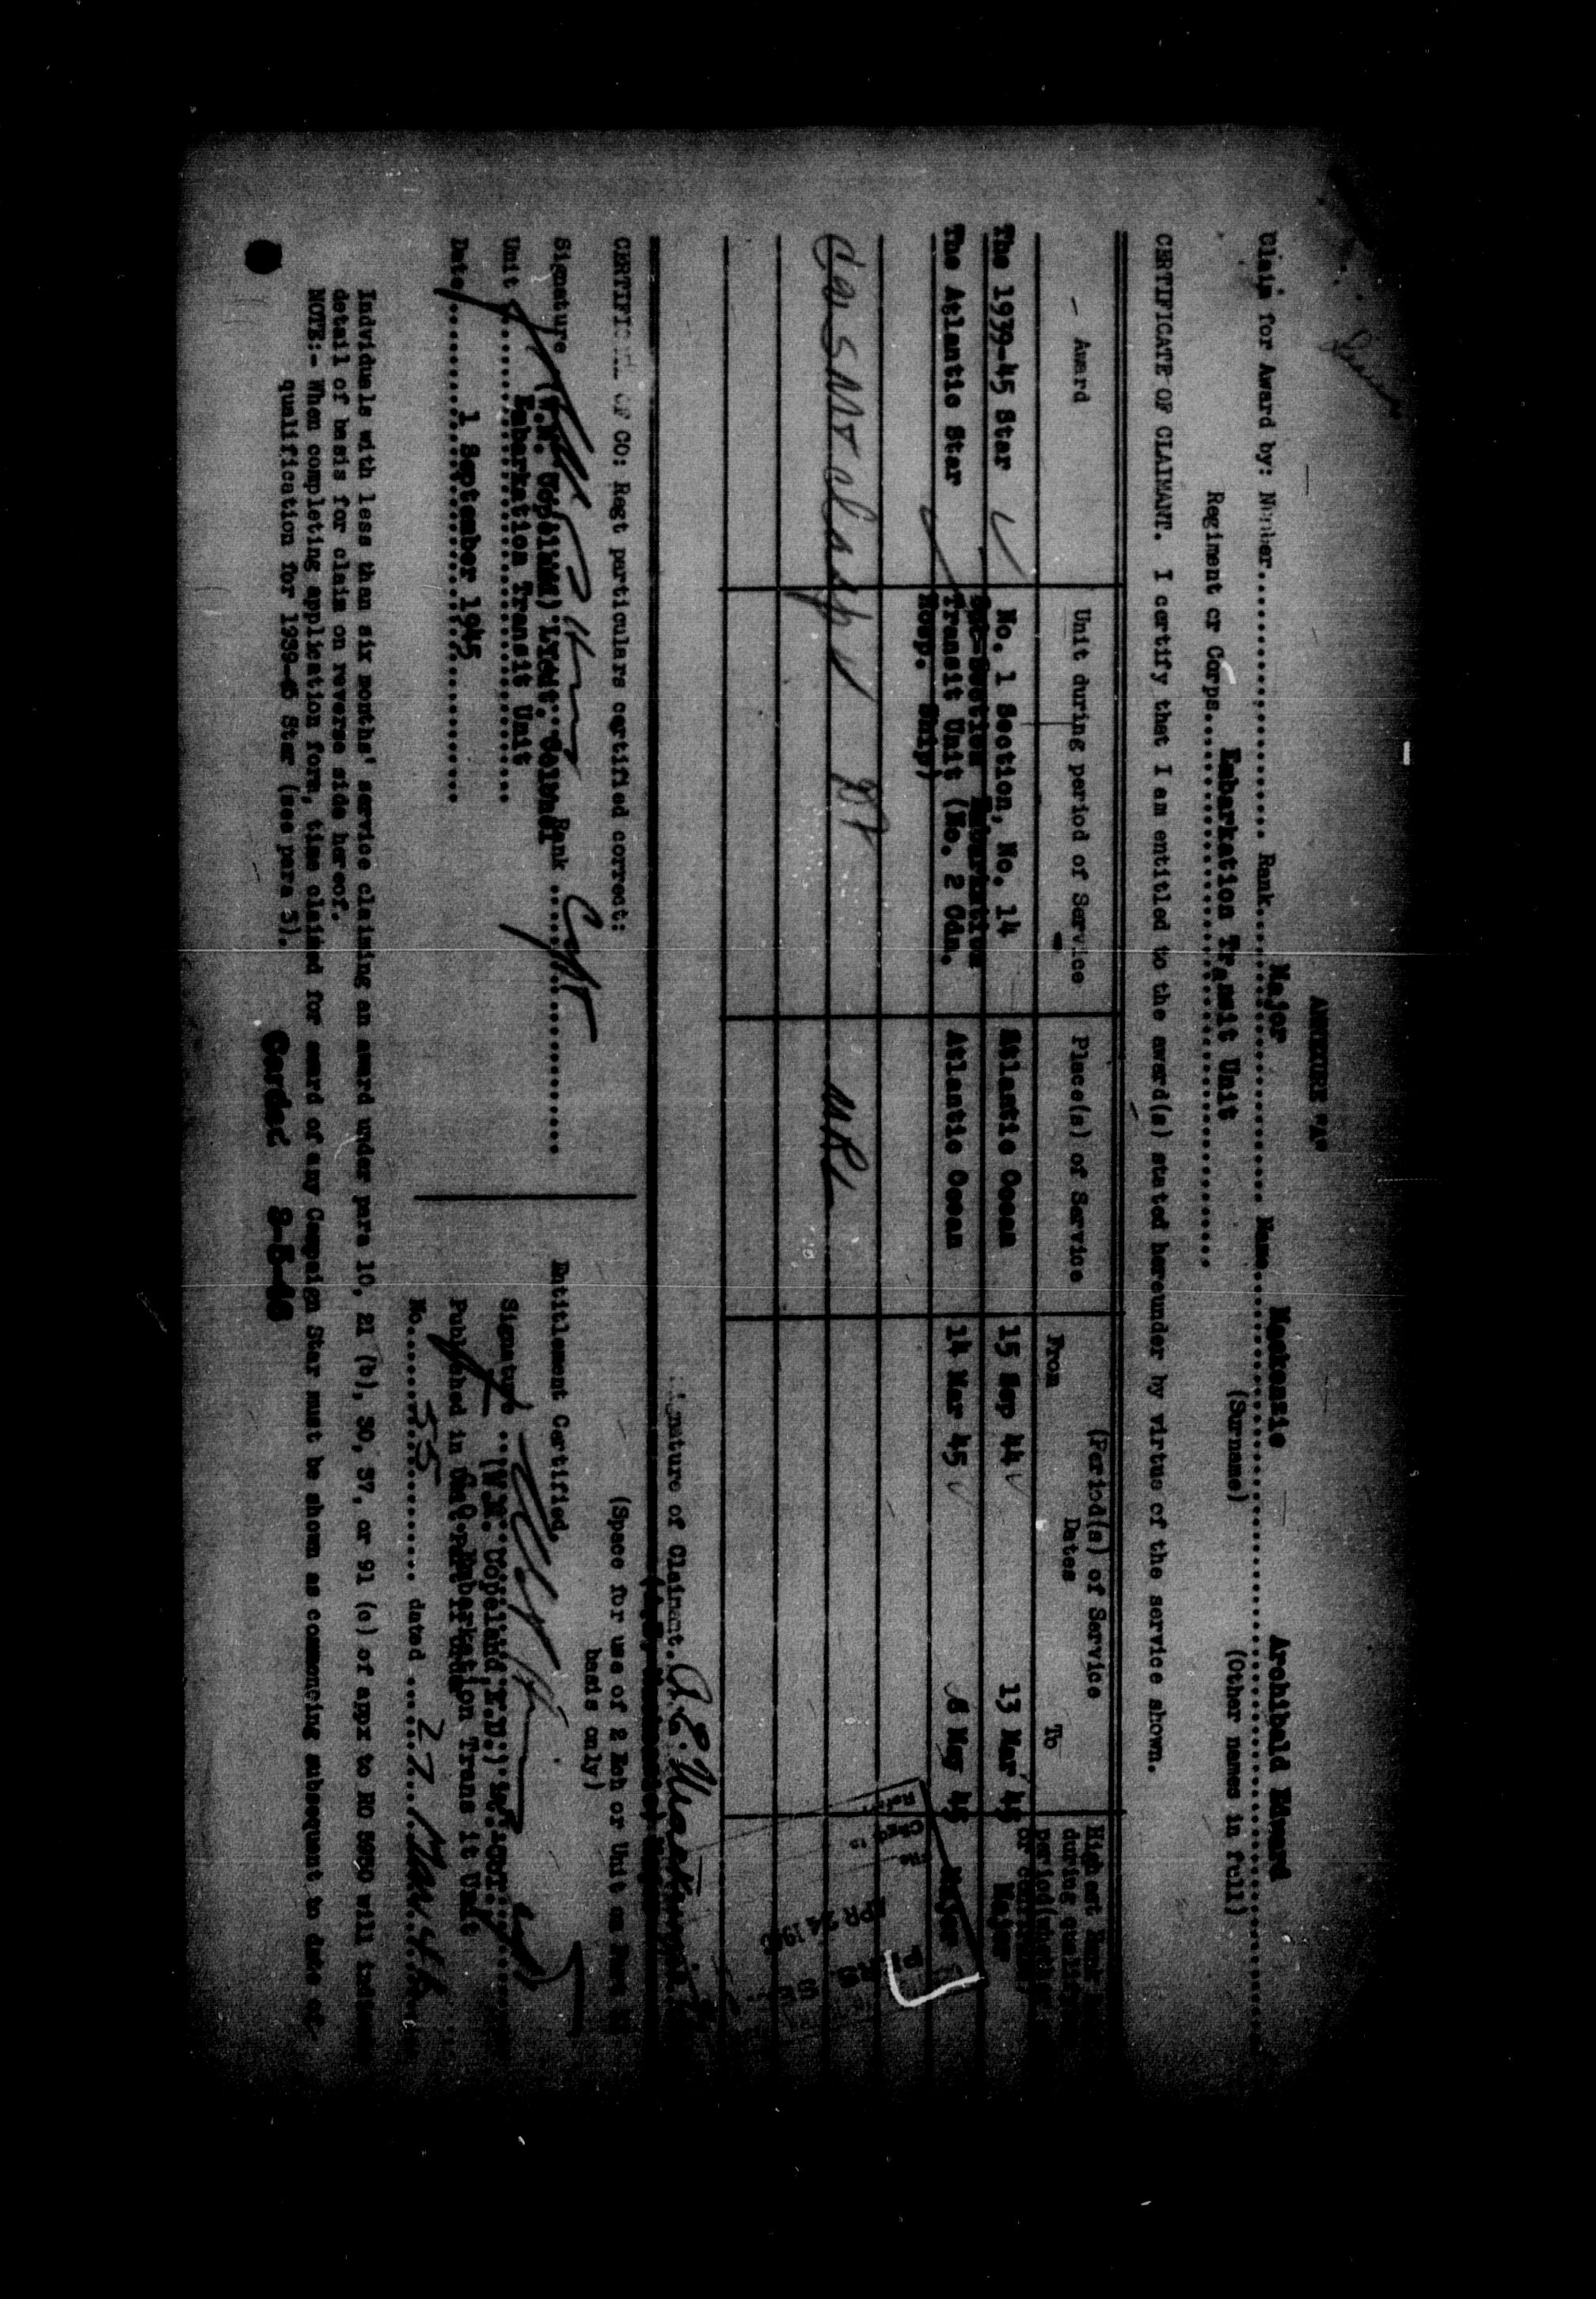 ANNEXURE "A"
Claim for Award by: Number.............. Rank....Major.... Name....Mackenzie Archibald Edward
(Surname) (Other names in full)
Regiment or Corps....Embarkation Transit Unit....
CERTIFICATE OF CLAIMANT. I certify that I am entitled to the award(s) stated hereunder by virtue of the service shown.
Award Unit during period of Service Place(s) of Service (Period(s) of Service Highest Rank
Dates during
From To period(
The 1939-45 Star No. 1 Section, No. 14 Atlantic Ocean 15 Sep 44 13 Mar 45 Major
The Atlantic Star Transit Unit (No. 2 Cdn. Atlantic Ocean 14 Mar 45 8 May 45 Major
Hosp. Ship)
MRL
APR 24 194
Signature of Claimant. A.E. Mackenzie
CERTIFIC OF CO: Regt particulars certified correct:
(Space for use of 2 Ech or Unit on Part II
basis only)
Signature Rank Capt
Copeland) Lieut. Colonel
Unit Embarkation Transit Unit
Date 1 September 1945
Entitlement Certified
Signature
(V.M. Copeland,
Published in Embarkation Trans it Unit
No. 55 dated 27 March
Indviduels with less than six months' service claiming an award under para 10, 21 (b), 30, 37, or 91 (c) of appx to RO 5950 will
detail of basis for claim on reverse side hereof.
NOTE:- When completing application form, time claimed for award of any Campaign Star must be shown as commencing subsequent to date of
qualification for 1939-45 Star (see para 5).
Carded 8-5-46